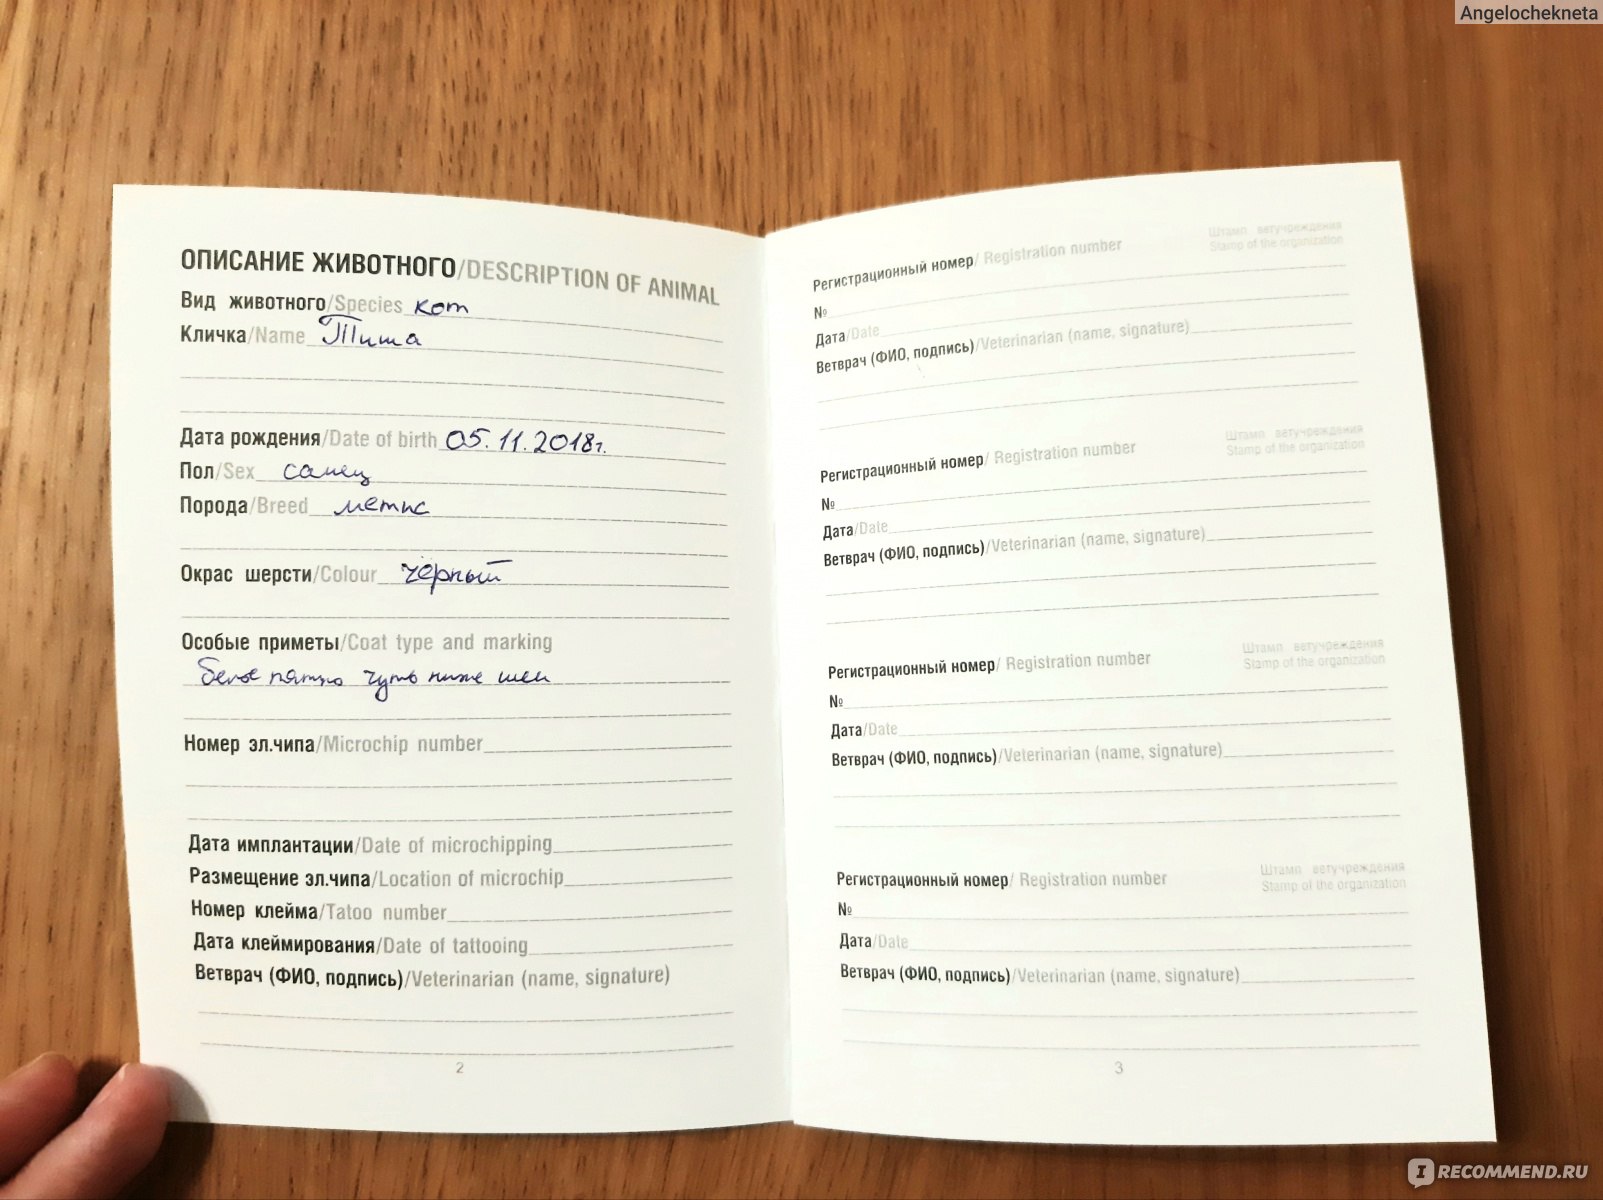 Angelochekneta
ОПИСАНИЕ ЖИВОТНОГО/DESCRIPTION OF ANIMAL
Вид животного/Species кот
Кличка/Name Тиша
Дата рождения/Date of birth 05.11.2018г.
Пол/Sex самец
Порода/Breed метис
Окрас шерсти/Colour чёрный
Особые приметы/Coat type and marking
белое пятно чуть ниже шеи
Номер эл.чипа/Microchip number
Дата имплантации/Date of microchipping
Размещение эл.чипа/Location of microchip
Номер клейма/Tatoo number
Дата клеймирования/Date of tattooing
Ветврач (ФИО, подпись)/Veterinarian (name, signature)
2
Штамп ветучреждения
Регистрационный номер/ Registration number Stamp of the organization
№
Дата/Date
Ветврач (ФИО, подпись)/Veterinarian (name, signature)
Штамп ветучреждения
Регистрационный номер/ Registration number Stamp of the organization
№
Дата/Date
Ветврач (ФИО, подпись)/Veterinarian (name, signature)
Штамп ветучреждения
Регистрационный номер/ Registration number Stamp of the organization
№
Дата/Date
Ветврач (ФИО, подпись)/Veterinarian (name, signature)
Штамп ветучреждения
Регистрационный номер/ Registration number Stamp of the organization
№
Дата/Date
Ветврач (ФИО, подпись)/Veterinarian (name, signature)
3
IRECOMMEND.RU